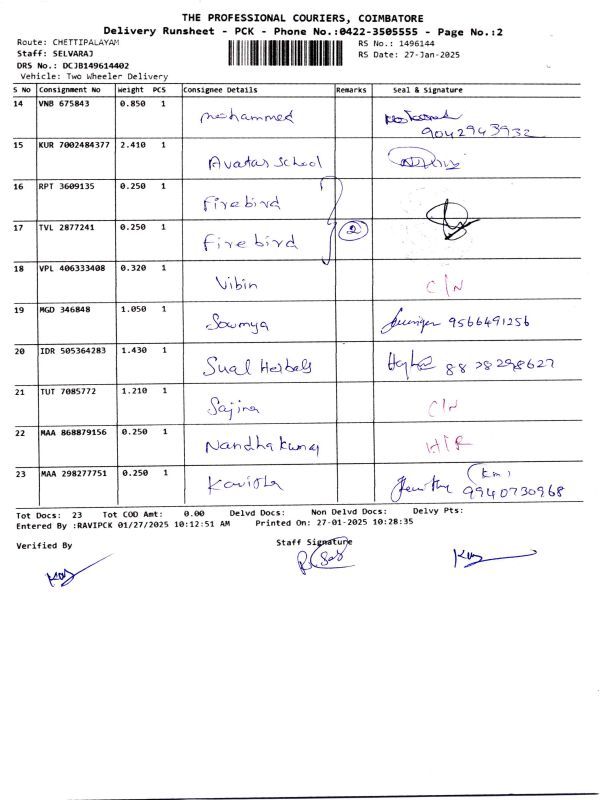 THE PROFESSIONAL COURIERS, COIMBATORE
Delivery Runsheet - PCK - Phone No.:0422-3505555 - Page No.:2
Route: CHETTIPALAYAM RS No.: 1496144
Staff: SELVARAJ RS Date: 27-Jan-2025
DRS No.: DCJB149614402
Vehicle: Two Wheeler Delivery
S No Consignment No Weight PCS Consignee Details Remarks Seal & Signature
14 VNB 675843 0.850 1 Mohammed
9042943932
15 KUR 7002484377 2.410 1 Avatar School
16 RPT 3609135 0.250 1 Firebird
17 TVL 2877241 0.250 1 Firebird 2
18 VPL 406333408 0.320 1 Vibin C/N
19 MGD 346848 1.050 1 Sowmya 9566491256
20 IDR 505364283 1.430 1 Sual Herbals 8878298627
21 TUT 7085772 1.210 1 Sajina C/N
22 MAA 868879156 0.250 1 Nandhakumar
23 MAA 298277751 0.250 1 Kavitha 9940730968
Tot Docs: 23 Tot COD Amt: 0.00 Delvd Docs: Non Delvd Docs: Delvy Pts:
Entered By :RAVIPCK 01/27/2025 10:12:51 AM Printed On: 27-01-2025 10:28:35
Verified By Staff Signature